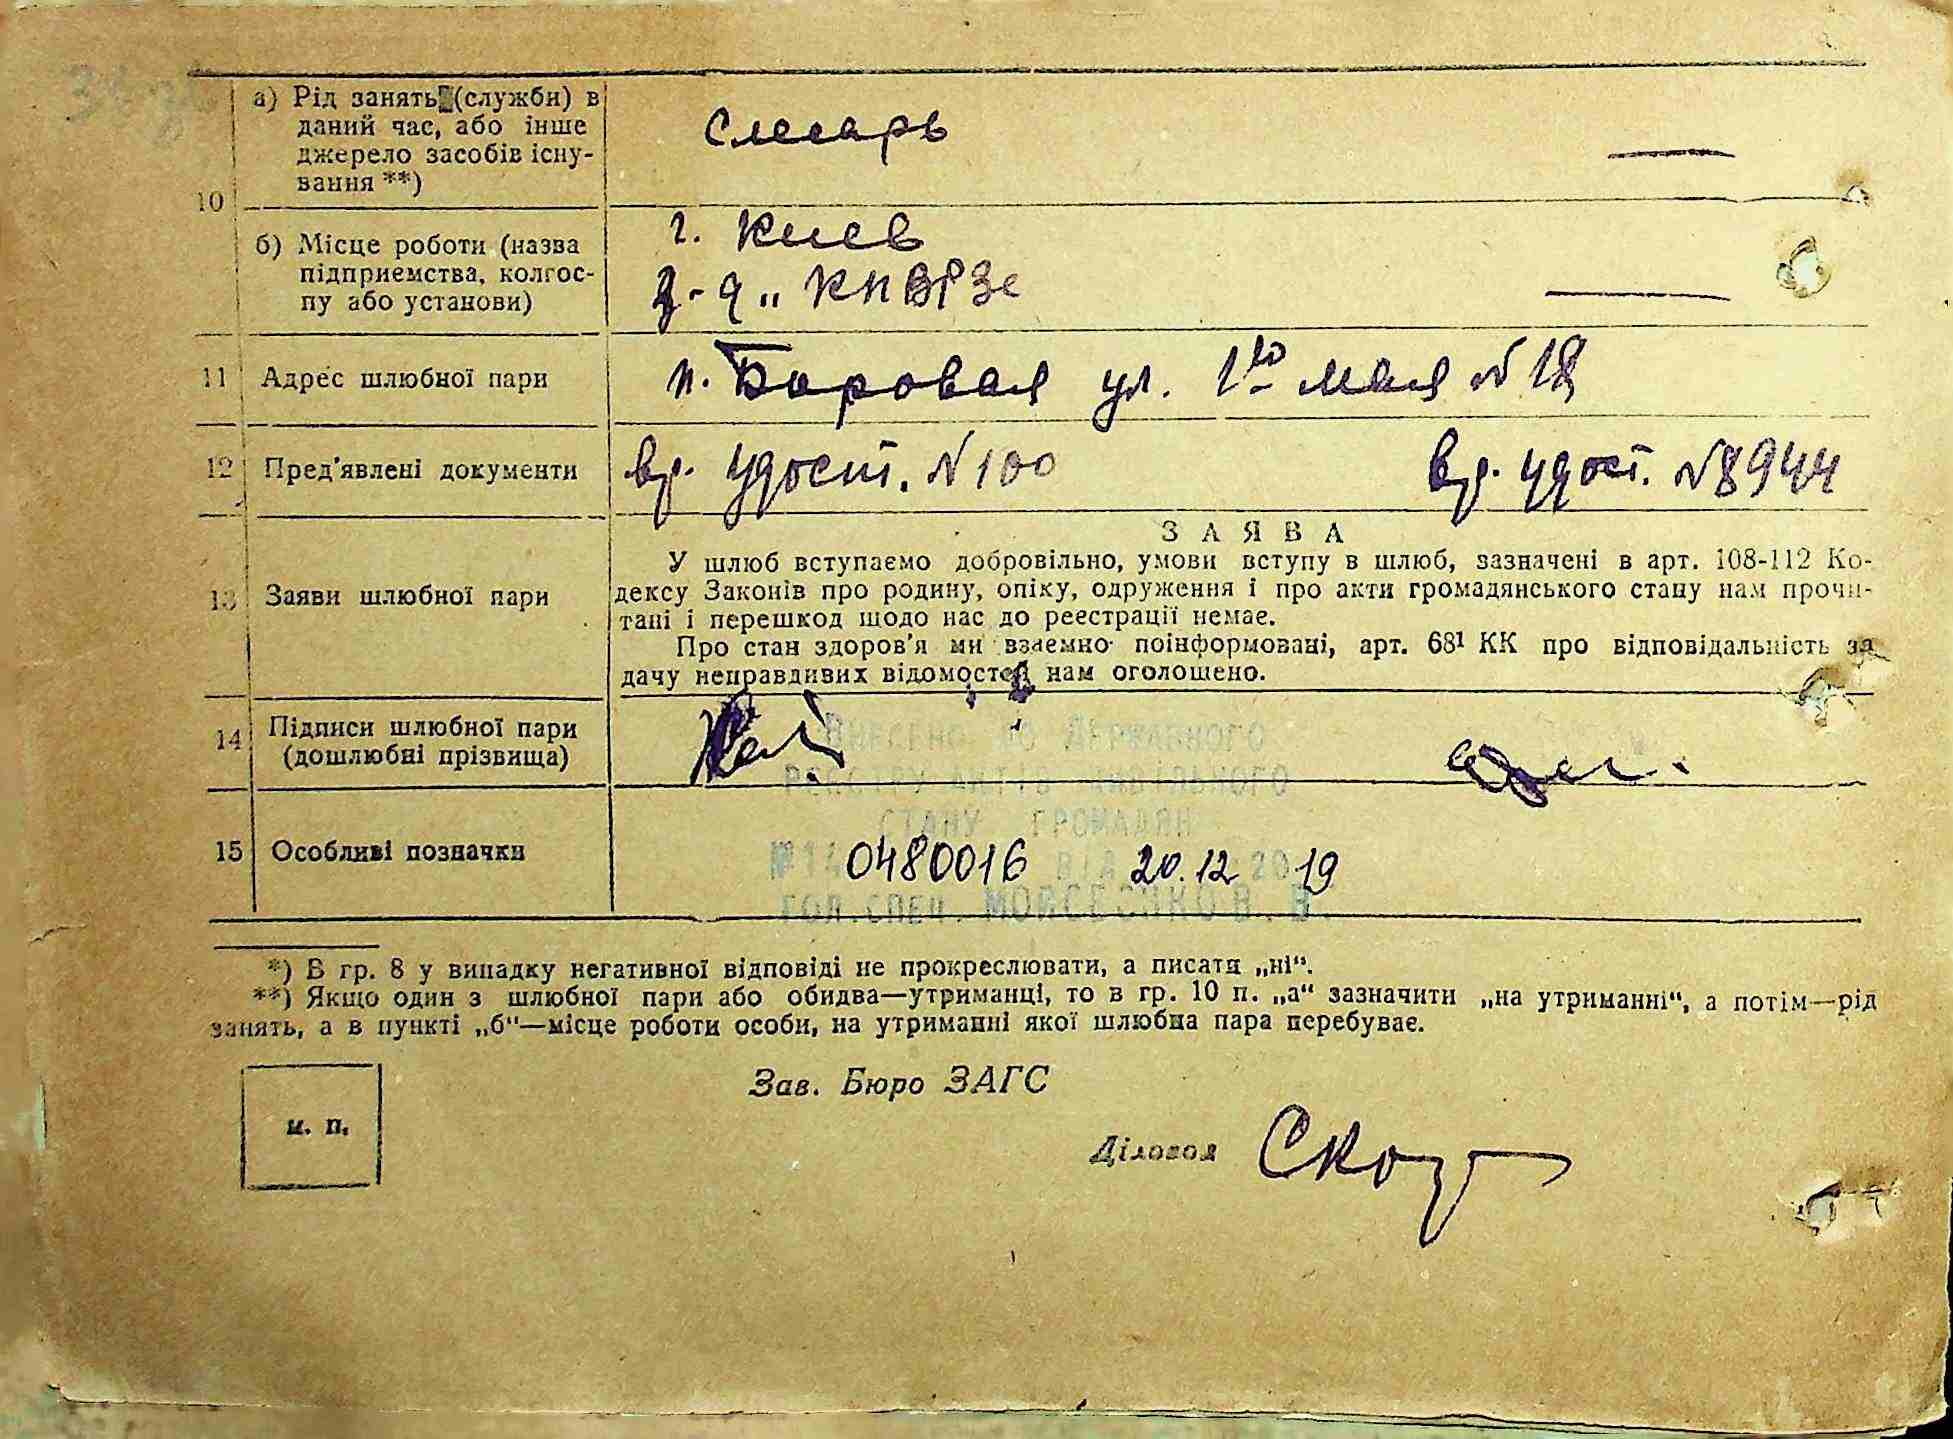 а) Рід занять (служби) в
даний час, або інше
джерело засобів існу-
вання **)
Слесарь
10
б) Місце роботи (назва
підприємства, колгос-
пу або установи)
г. Киев
з-д „КПВРЗ
11 Адрес шлюбної пари
п. Боровая ул. 1го мая №18
12 Пред'явлені документи
вр. удост. №100 вр. удост. №8944
13 Заяви шлюбної пари
ЗАЯВА
У шлюб вступаємо добровільно, умови вступу в шлюб, зазначені в арт. 108-112 Ко-
дексу Законів про родину, опіку, одруження і про акти громадянського стану нам прочи-
тані і перешкод щодо нас до реестрації немає.
Про стан здоров'я ми взаємно поінформовані, арт. 68¹ КК про відповідальність за
дачу неправдивих відомостей нам оголошено.
14 Підписи шлюбної пари
(дошлюбні прізвища)
Внесено до Державного
реєстру актів цивільного
стану громадян
15 Особливі позначки
№ 0480016 від 20.12 2019
гол.спец. Моисеєнко В. В.
*) В гр. 8 у випадку негативної відповіді не прокреслювати, а писати „ні“.
**) Якщо один з шлюбної пари або обидва—утриманці, то в гр. 10 п. „а“ зазначити „на утриманні“, а потім—рід
занять, а в пункті „б“—місце роботи особи, на утриманні якої шлюбна пара перебуває.
м. п.
Зав. Бюро ЗАГС
Діловод